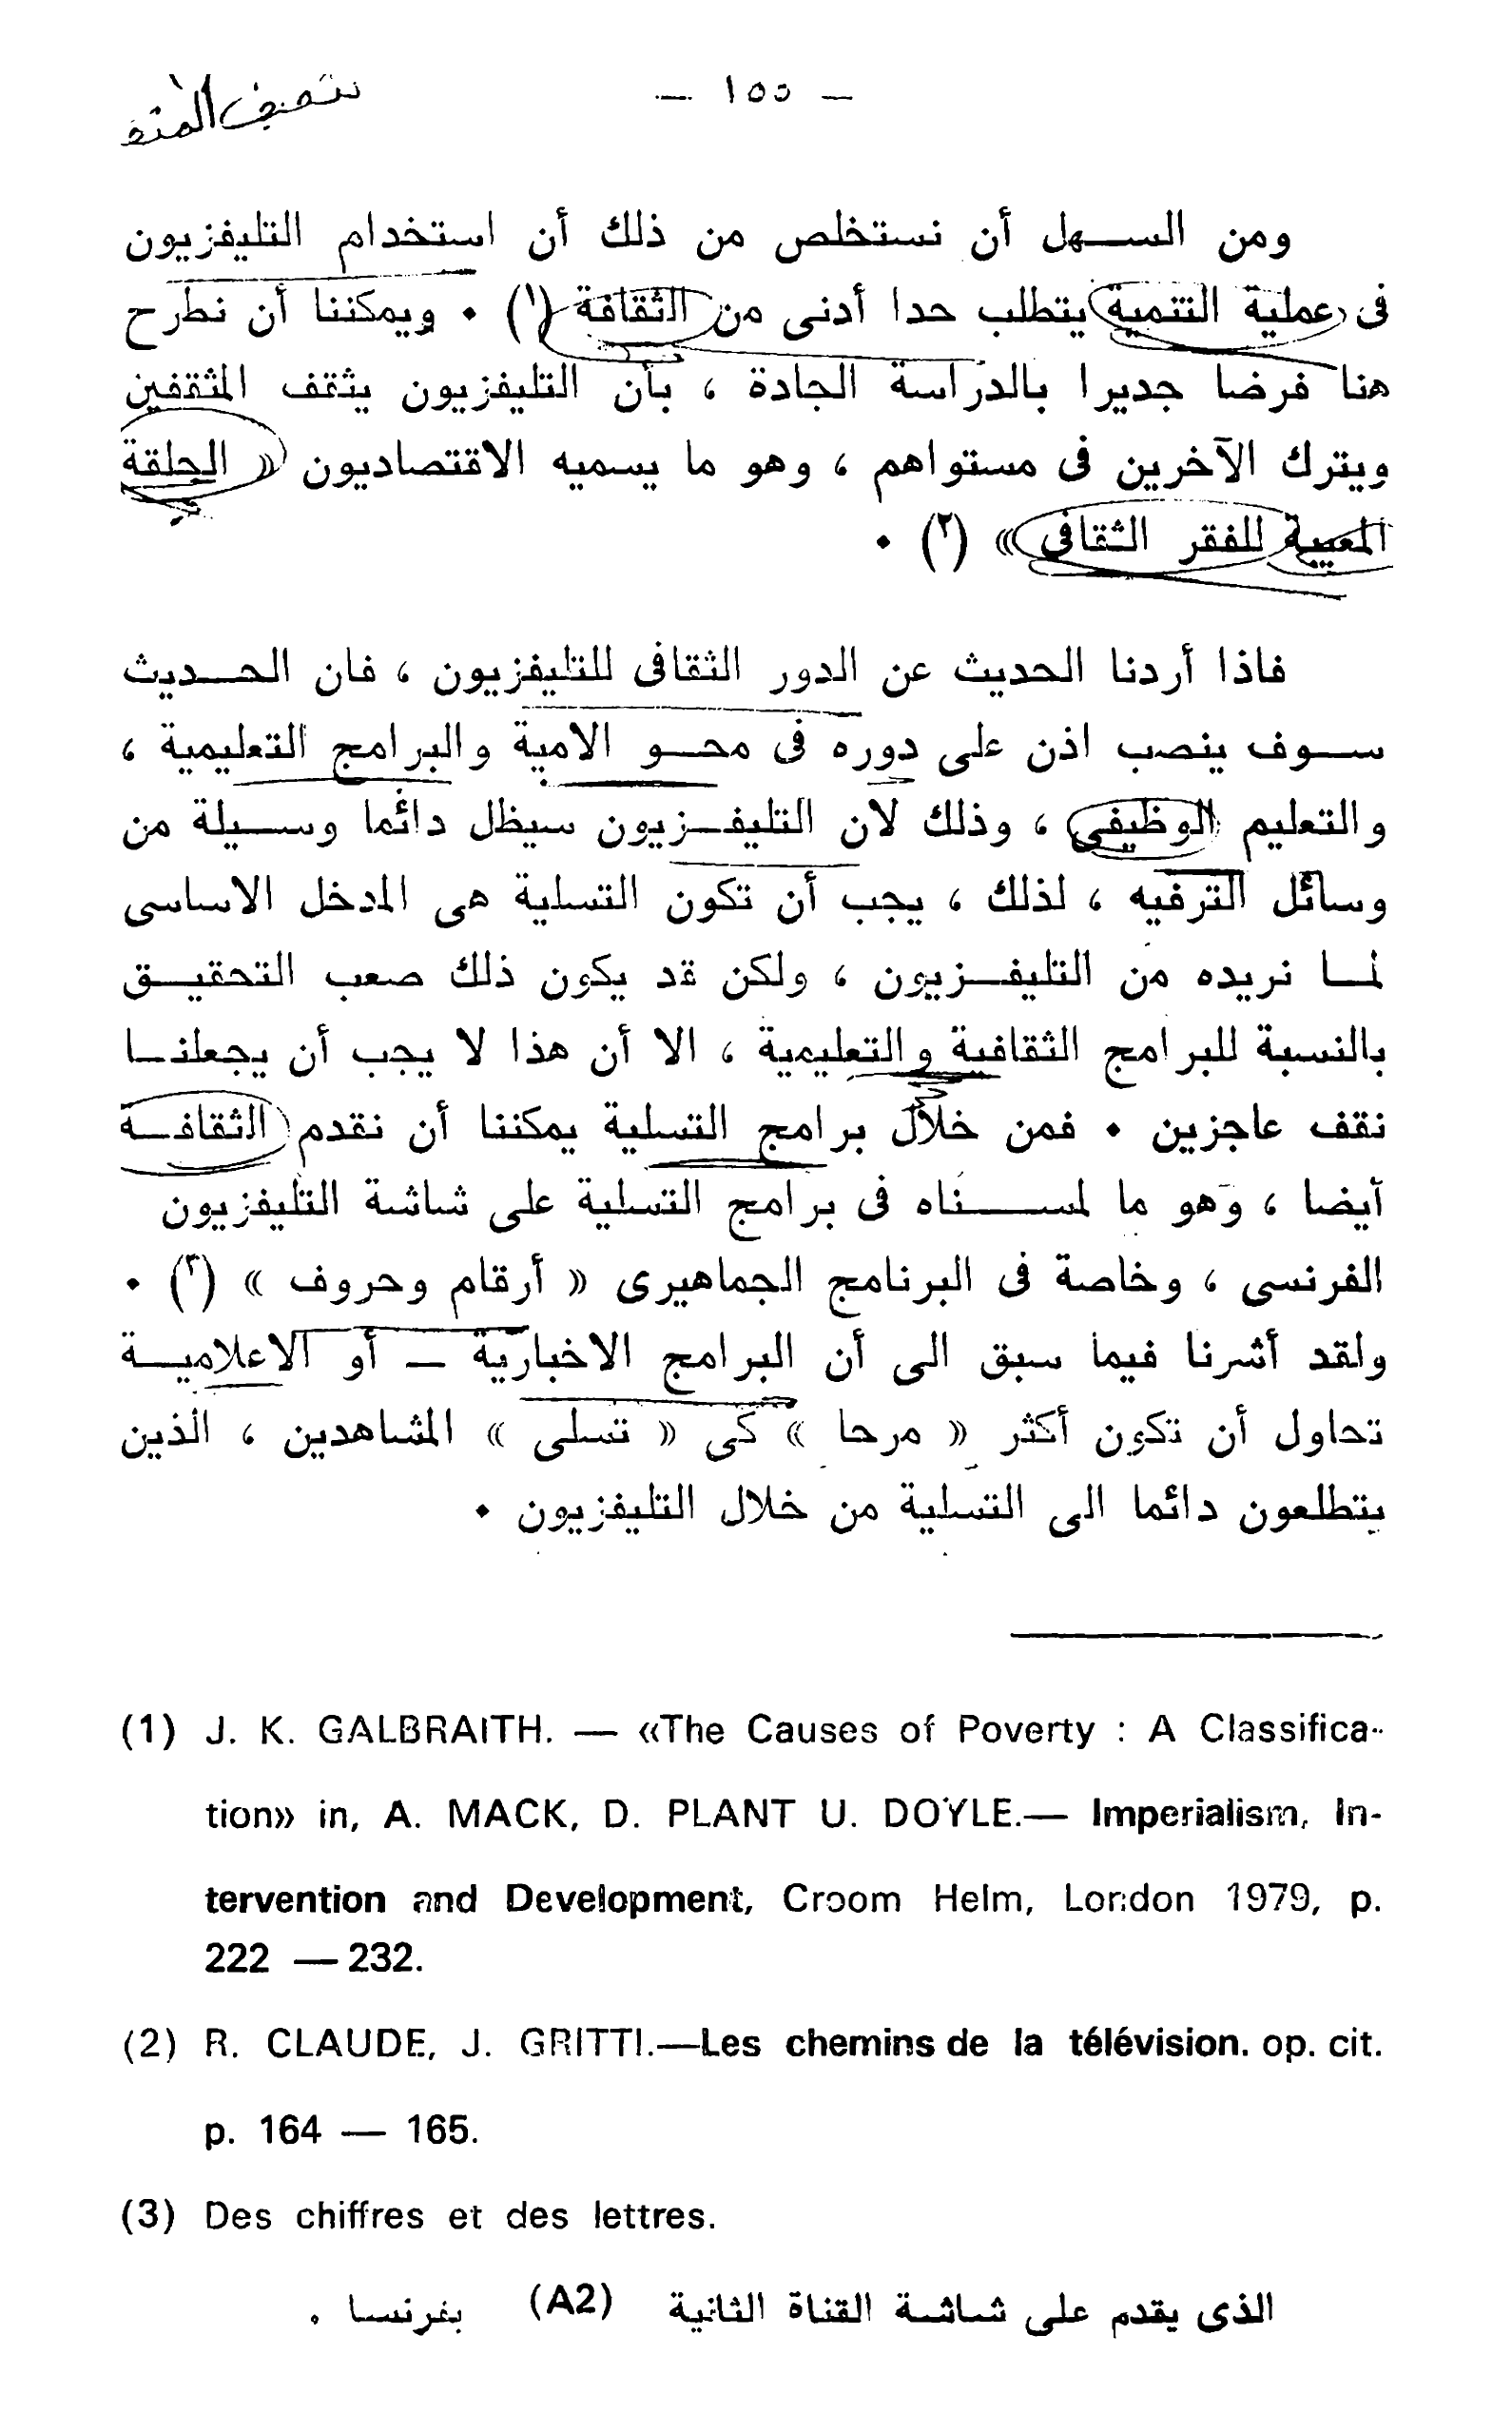 — ١٥٥ —
ومن السهل أن نستخلص من ذلك أن استخدام التليفزيون
فى عملية التنمية يتطلب حدا أدنى من الثقافة (١) . ويمكننا أن نطرح
هنا فرضا جديرا بالدراسة الجادة ، بأن التليفزيون يثقف المثقفين
ويترك الآخرين فى مستواهم ، وهو ما يسميه الاقتصاديون « الحلقة
المعيبة للفقر الثقافى » (٢) .
فاذا أردنا الحديث عن الدور الثقافى للتليفزيون ، فان الحديث
سوف ينصب اذن على دوره فى محو الامية والبرامج التعليمية ،
والتعليم الوظيفى ، وذلك لان التليفزيون سيظل دائما وسيلة من
وسائل الترفيه ، لذلك ، يجب أن تكون التسلية هى المدخل الاساسى
لما نريده من التليفزيون ، ولكن قد يكون ذلك صعب التحقيق
بالنسبة للبرامج الثقافية والتعليمية ، الا أن هذا لا يجب أن يجعلنا
نقف عاجزين . فمن خلال برامج التسلية يمكننا أن نقدم الثقافة
أيضا ، وهو ما لمسناه فى برامج التسلية على شاشة التليفزيون
الفرنسى ، وخاصة فى البرنامج الجماهيرى « أرقام وحروف » (٣) .
ولقد أشرنا فيما سبق الى أن البرامج الاخبارية — أو الاعلامية
تحاول أن تكون أكثر « مرحا » كى « تسلى » المشاهدين ، الذين
يتطلعون دائما الى التسلية من خلال التليفزيون .
(1) J. K. GALBRAITH. — «The Causes of Poverty : A Classifica-
tion» in, A. MACK, D. PLANT U. DOYLE.— Imperialism, In-
tervention and Development, Croom Helm, London 1979, p.
222 — 232.
(2) R. CLAUDE, J. GRITTI.—Les chemins de la télévision. op. cit.
p. 164 — 165.
(3) Des chiffres et des lettres.
الذى يقدم على شاشة القناة الثانية (A2) بفرنسا .